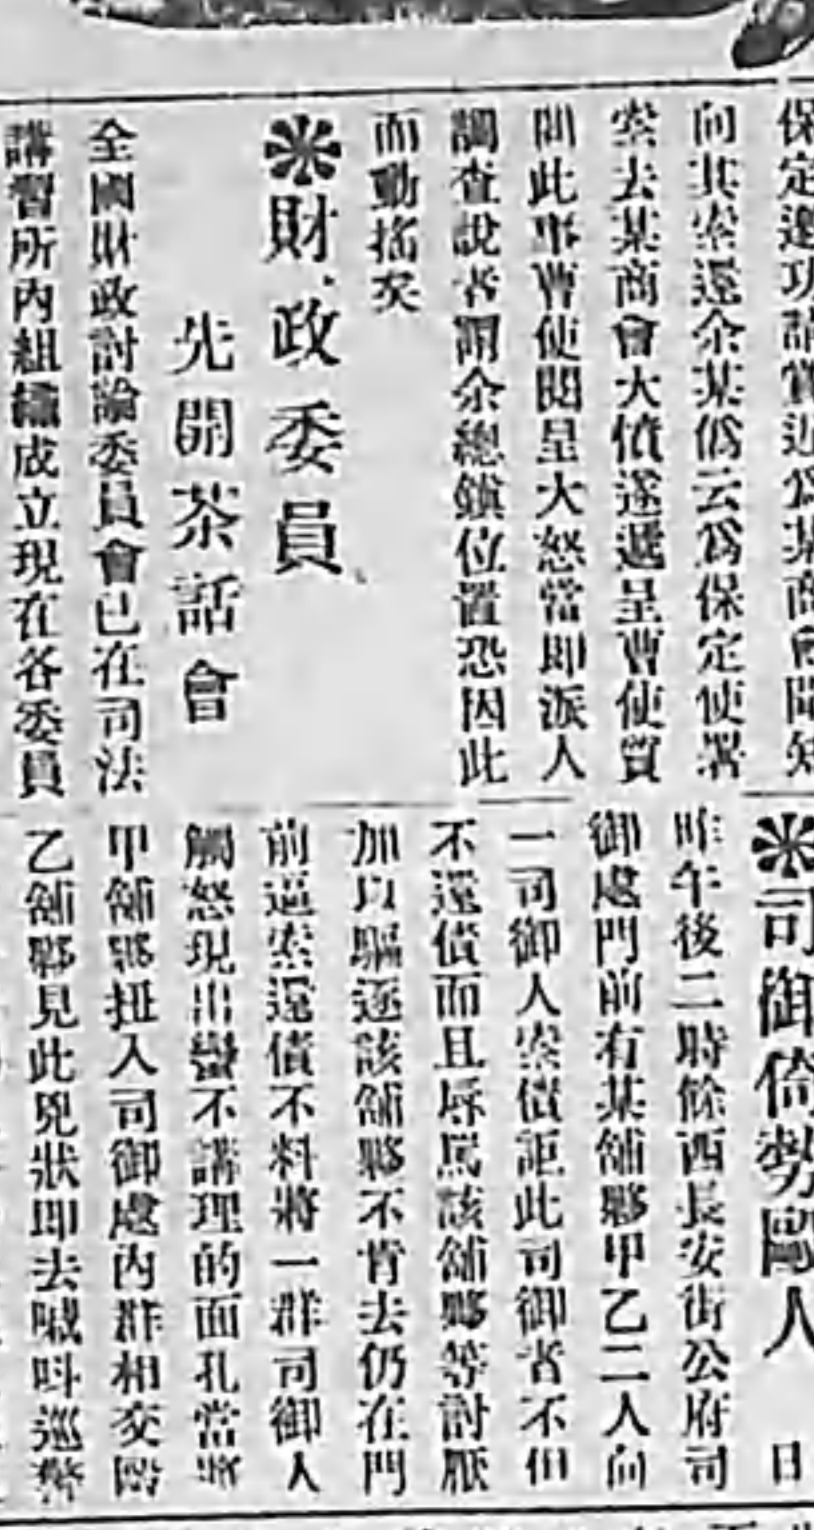 保定邀功請賞近爲某商會聞知
向其索還余某僞云爲保定使署
索去某商會大憤遂遞呈曹使質
問此事曹使閱呈大怒當即派人
調查說者謂余總鎭位置恐因此
而動搖矣
財政委員
先開茶話會
全國財政討論委員會已在司法
講習所內組織成立現在各委員
司御倚勢毆人
昨午後二時餘西長安街公府司
御處門前有某舖夥甲乙二人向
一司御人索債詎此司御者不但
不還債而且辱罵該舖夥等討厭
加以驅逐該舖夥不肯去仍在門
前逼索還債不料將一群司御人
觸怒現出蠻不講理的面孔當將
甲舖夥扭入司御處內群相交毆
乙舖夥見此兇狀即去喊呌巡警